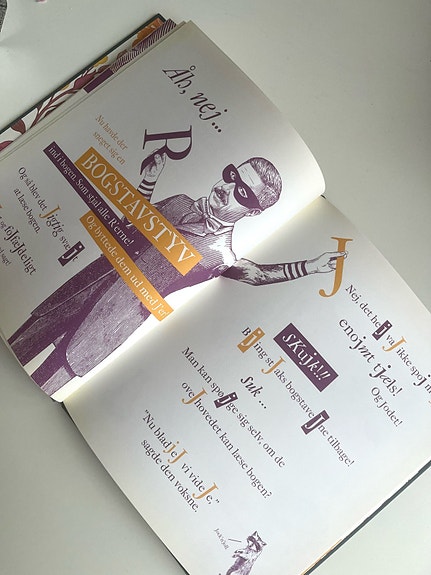 Åh, nej...
Nu havde der
sneget sig en
R
BOGSTAVSTYV
ind i bogen. Som stjal alle R'erne!
Og byttede dem ud med J'er
Og så blev det Jigtig svæj
at læse bogen.
J
Nej, det hej vaJ ikke
enojmt tjels!
Og Jodet!
sKujk!!!
BJing stJaks bogstavejne tilbage!
Suk ...
Man kan spøjge sig selv om de
oveJhovedet kan læse bogen?
"Nu bladjeJ vi videJe,"
sagde den voksne.